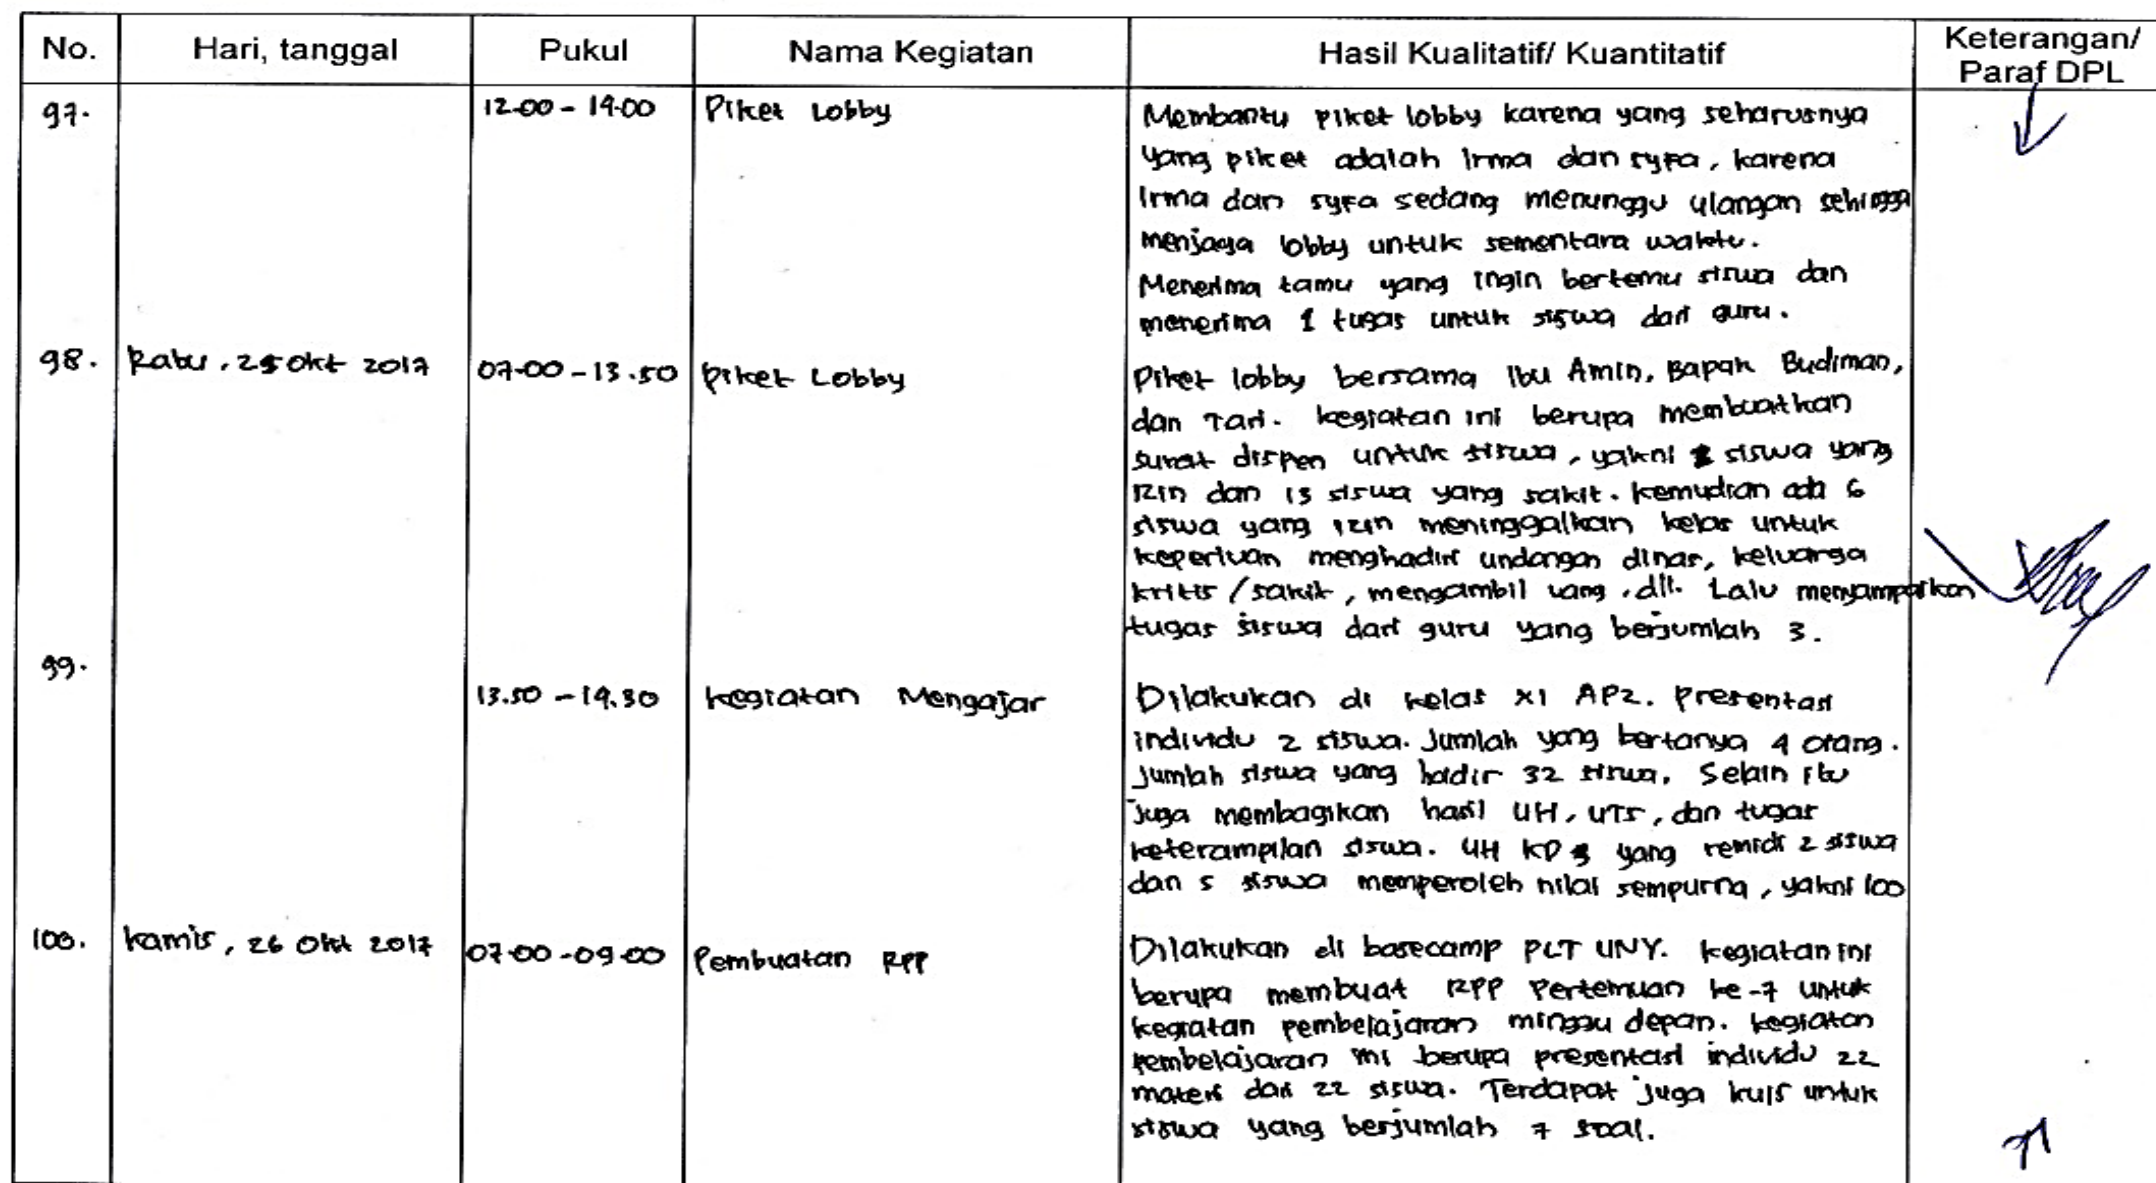 No. Hari, tanggal Pukul Nama Kegiatan Hasil Kualitatif/ Kuantitatif Keterangan/
Paraf DPL
97. 12.00 - 14.00 Piket Lobby Membantu piket lobby karena yang seharusnya
yang piket adalah Irma dan syfa, karena
Irma dan syfa sedang menunggu ulangan sehingga
menjaga lobby untuk sementara waktu.
Menerima tamu yang ingin bertemu siswa dan
menerima 1 tugas untuk siswa dari guru.
98. Rabu, 25 Okt 2017 07.00 - 13.50 Piket Lobby Piket lobby bersama Ibu Amin, Bapak Budiman,
dan Tari. kegiatan ini berupa membuatkan
surat dispen untuk siswa, yakni siswa yang
izin dan 13 siswa yang sakit. Kemudian ada 6
siswa yang izin meninggalkan kelas untuk
keperluan menghadiri undangan dinas, keluarga
kritis / sakit, mengambil uang, dll. Lalu menyampaikan
tugas siswa dari guru yang berjumlah 3.
99. 13.50 - 14.30 Kegiatan Mengajar Dilakukan di kelas XI AP2. Presentasi
individu 2 siswa. Jumlah yang bertanya 4 orang.
Jumlah siswa yang hadir 32 siswa. Selain itu
juga membagikan hasil UH, UTS, dan tugas
keterampilan siswa. UH KD yang remidi 2 siswa
dan 5 siswa memperoleh nilai sempurna, yakni 100
100. Kamis, 26 Okt 2017 07.00 - 09.00 Pembuatan RPP Dilakukan di basecamp PLT UNY. kegiatan ini
berupa membuat RPP Pertemuan ke-7 untuk
kegiatan pembelajaran minggu depan. kegiatan
pembelajaran ini berupa presentasi individu 22
materi dari 22 siswa. Terdapat juga kuis untuk
siswa yang berjumlah 7 soal.